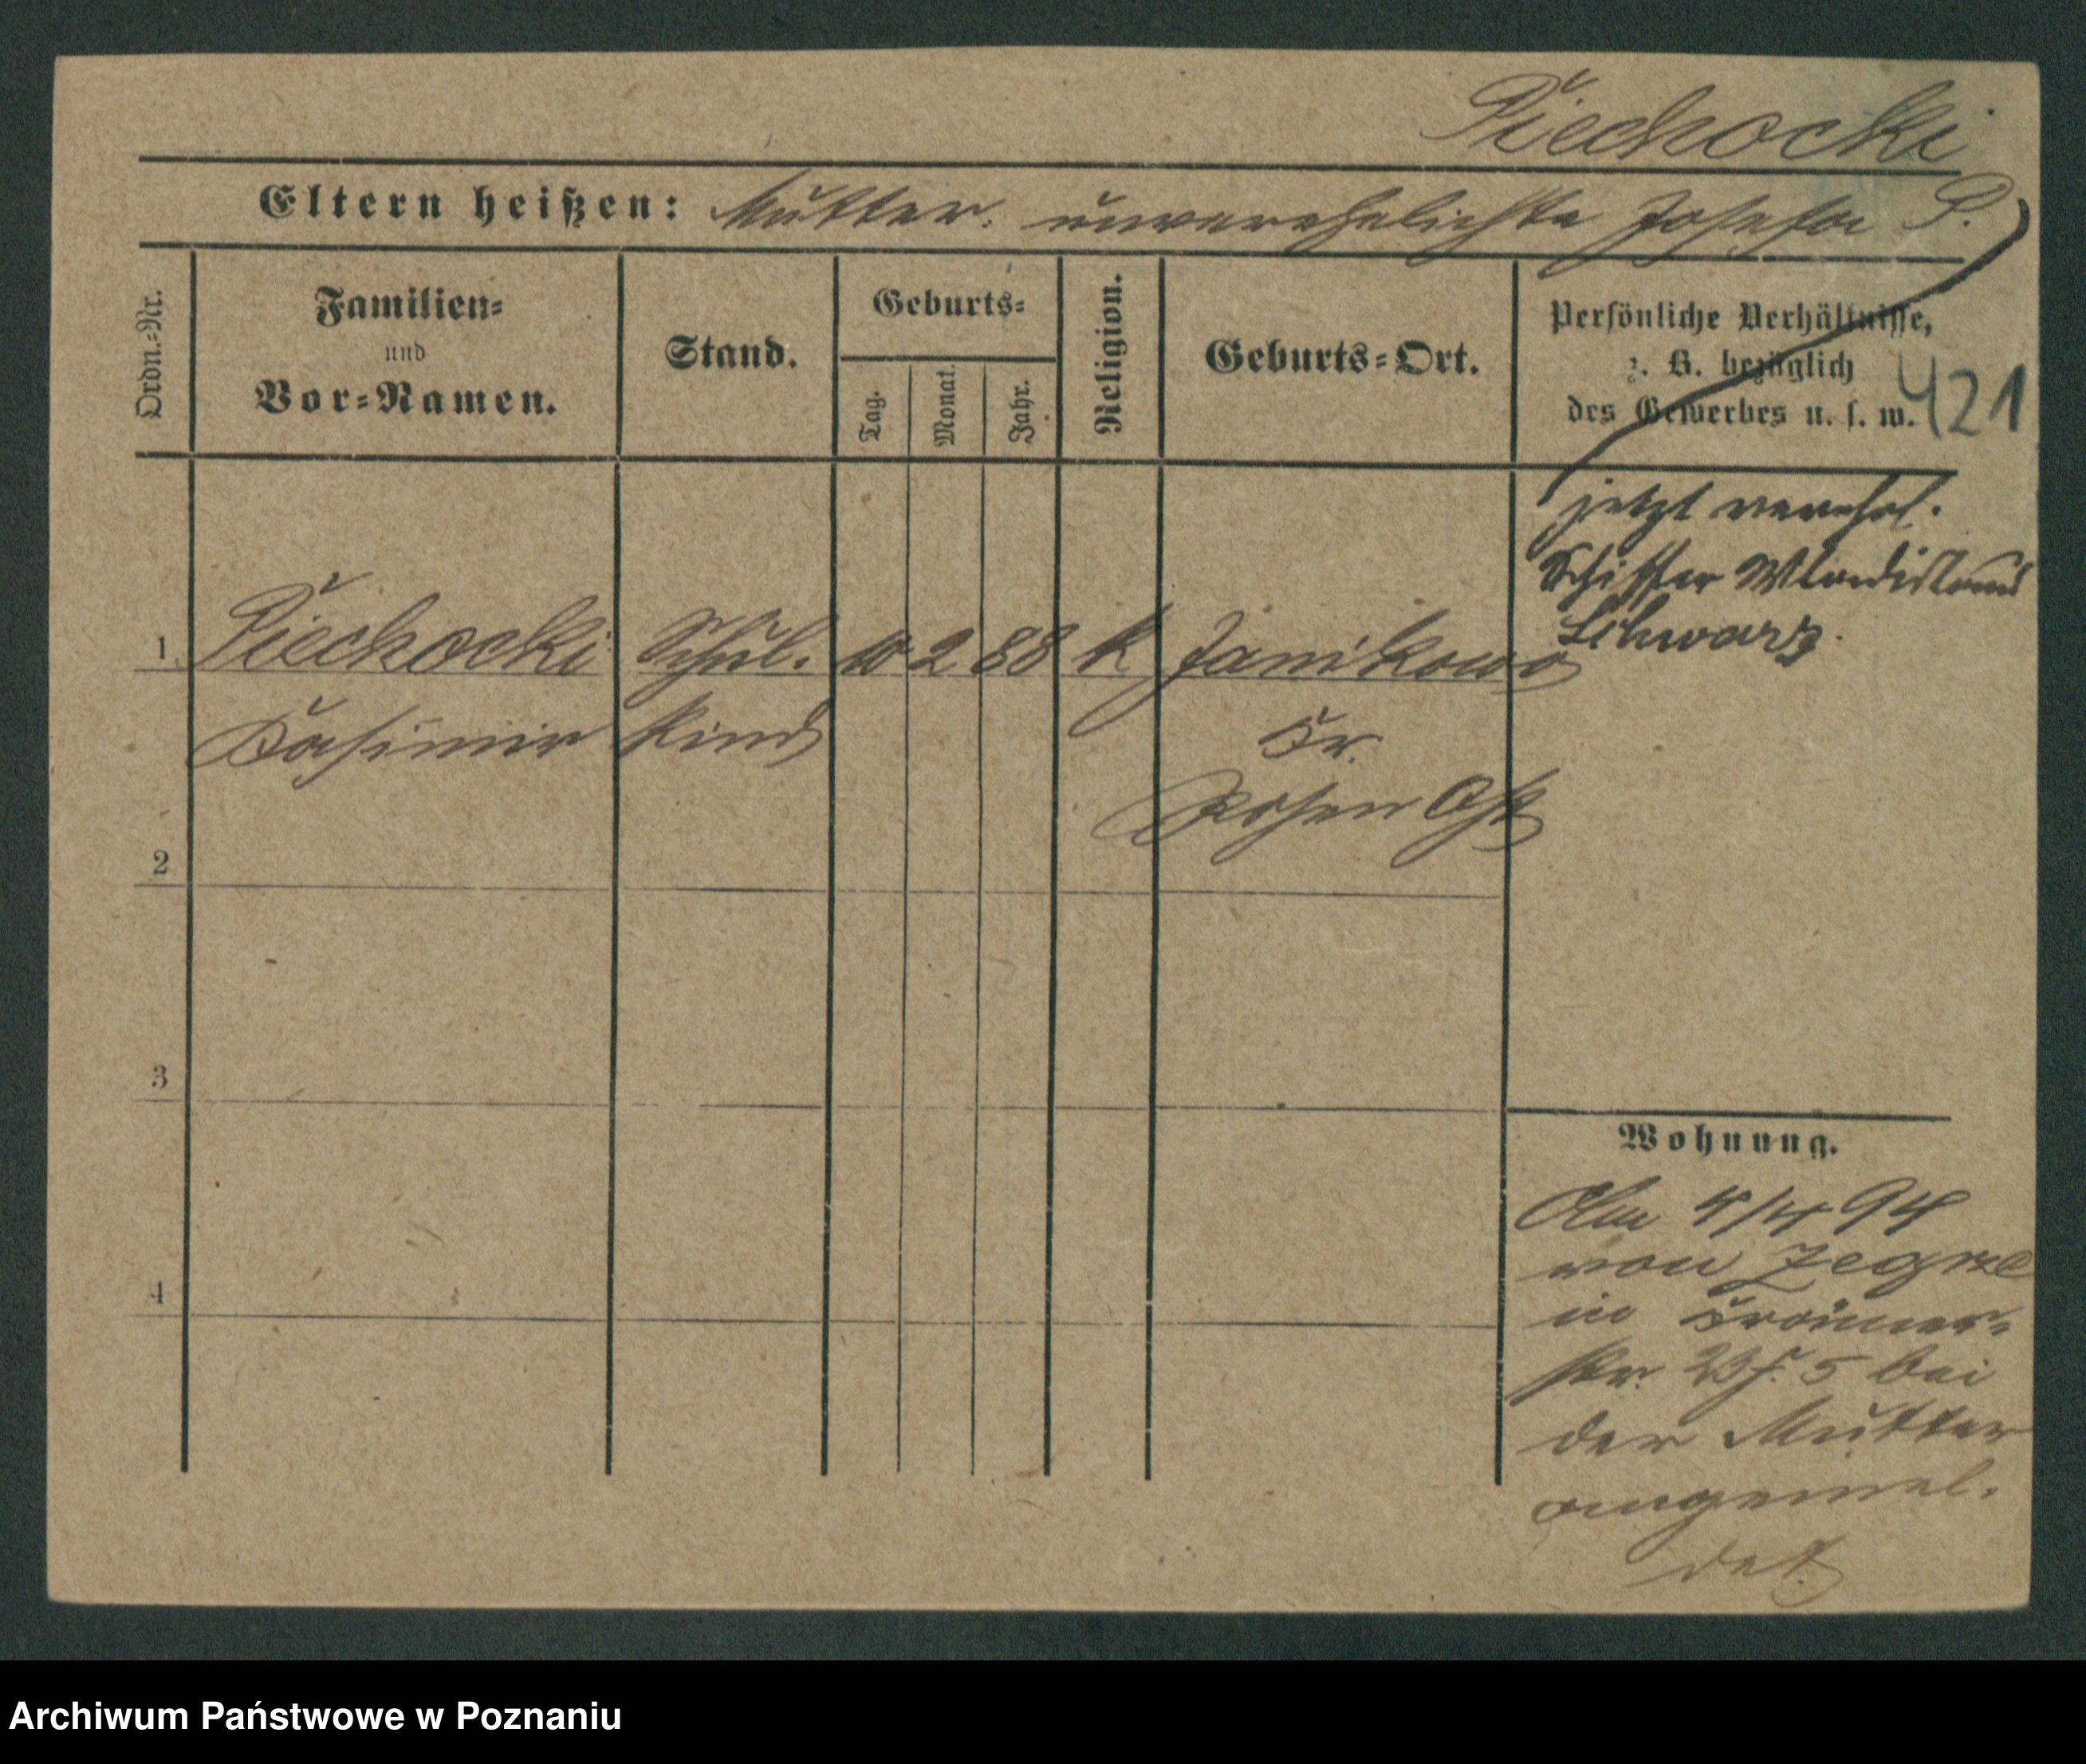 Piechocki
Eltern heißen: Mutter: unverehelichte Josefa P.
Ordn.-Nr.
Familien-
und
Vor-Namen.
Stand.
Geburts-
Tag.
Monat.
Jahr.
Religion.
Geburts-Ort.
Persönliche Verhältnisse,
z. B. bezüglich
des Gewerbes u. s. w.
421
jetzt verehel.
Schiffer Wladislaus
Schwarz.
1 Piechocki Schul. 10 2 88 k Janikowo
Kasimir kind Kr.
Posen Ost
2
3
4
Wohnung.
Am 4/4 94
von Zegrze
in Krämer-
str. 5 bei
der Mutter
angemel-
det
Archiwum Państwowe w Poznaniu